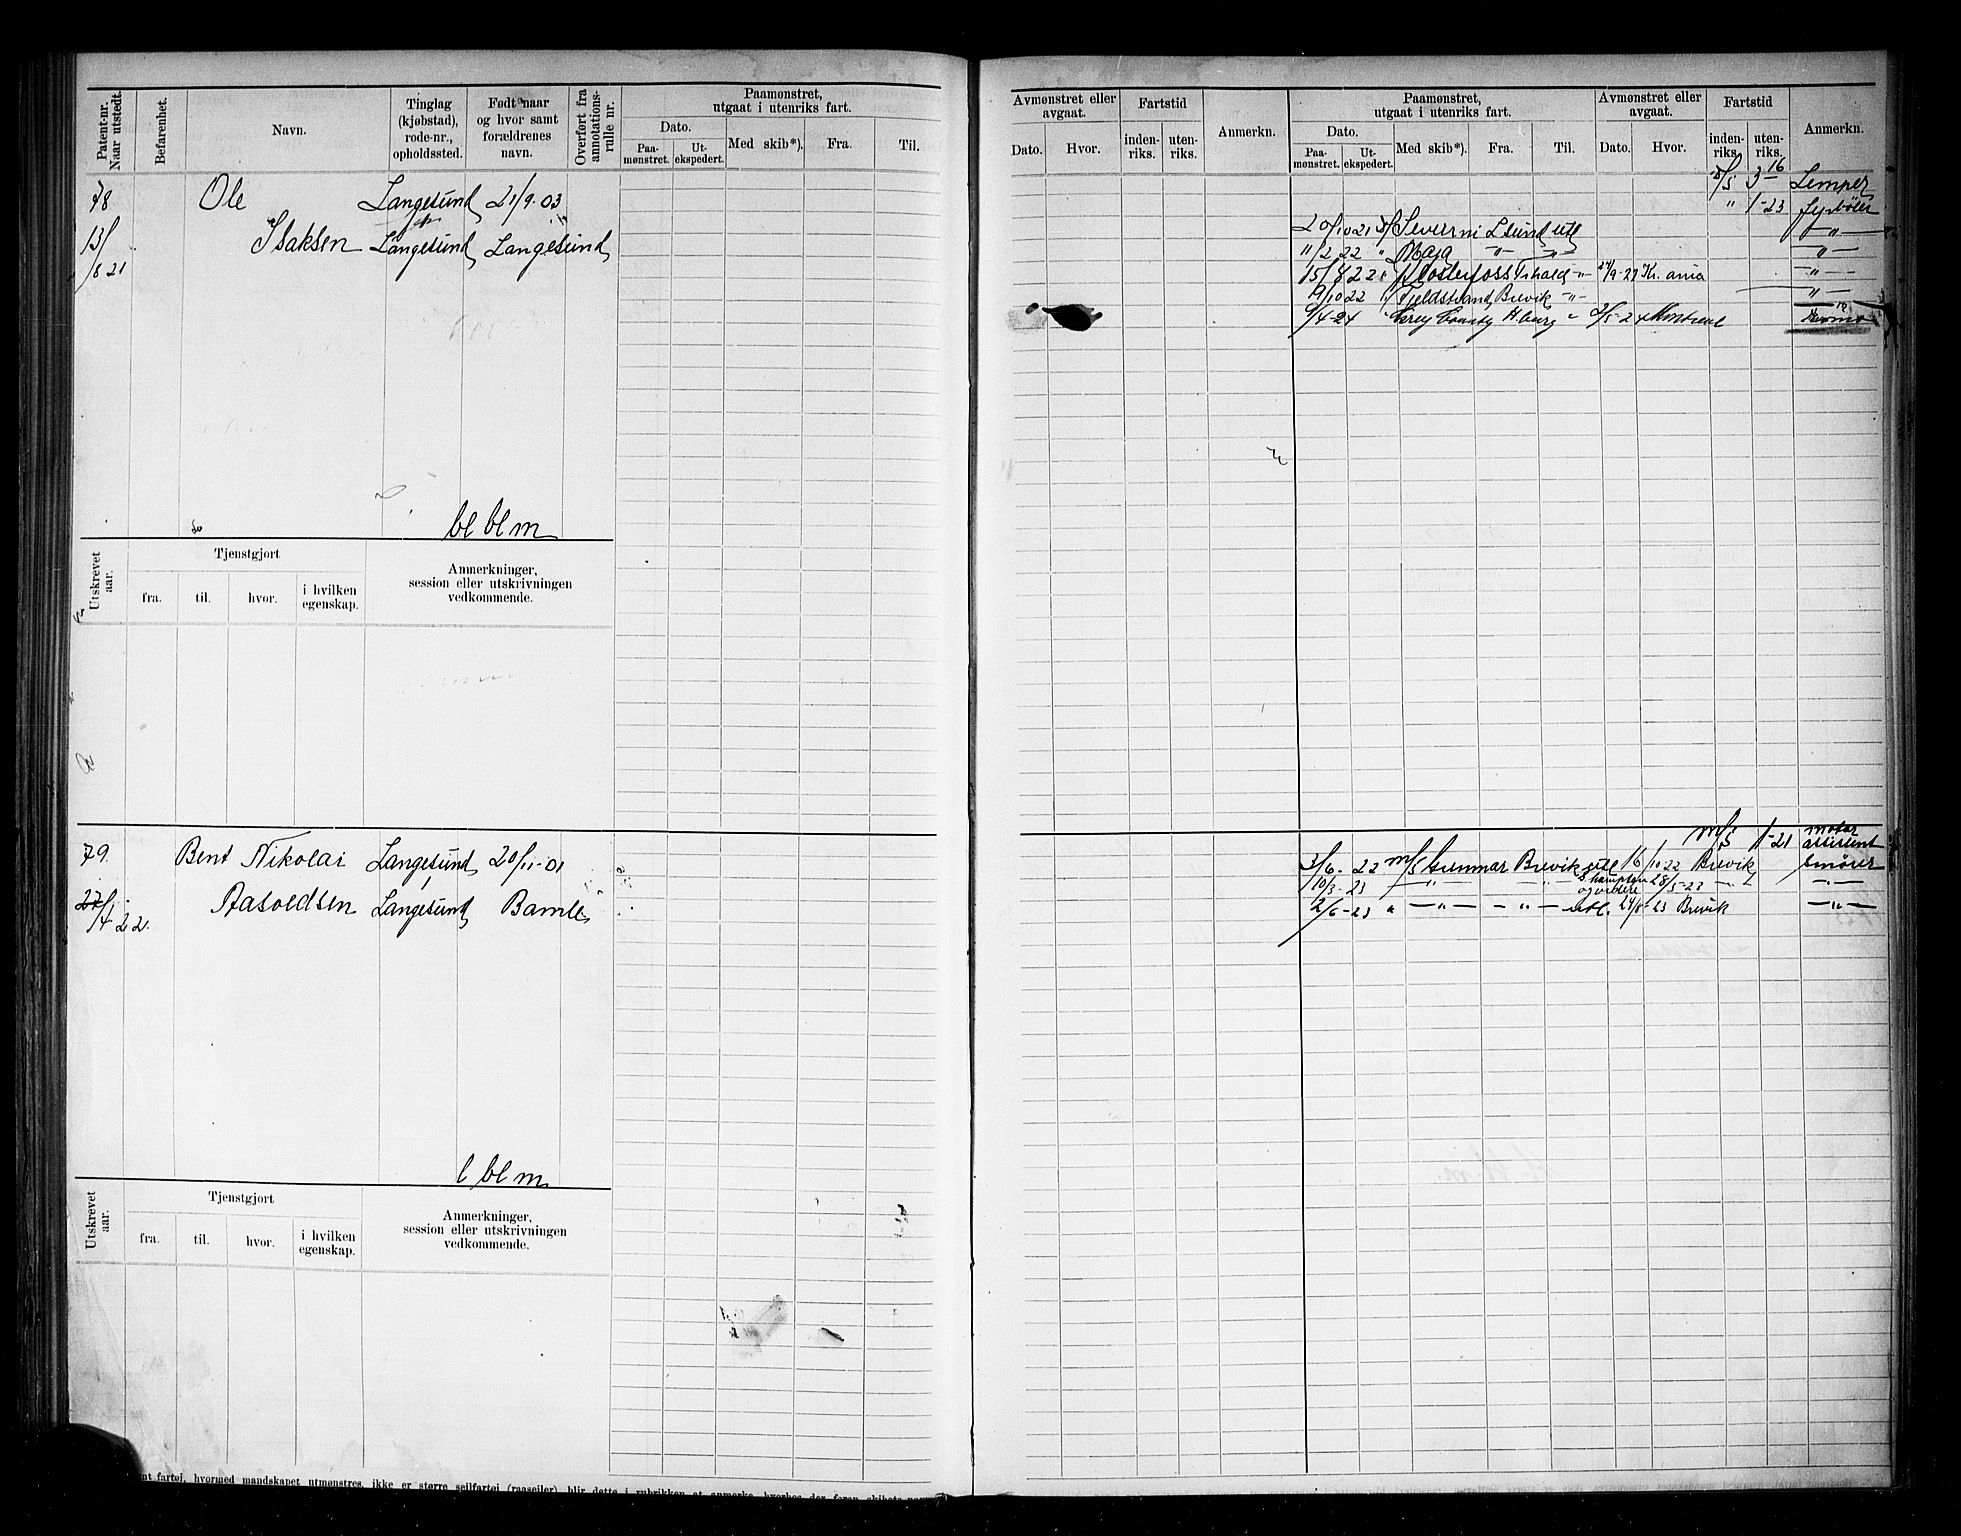 Patent-nr. Naar utstedt.
Befarenhet.
Navn.
Tinglag (kjøbstad), rode-nr., opholdssted.
Født naar og hvor samt forældrenes navn.
Overført fra annotations-rulle nr.
Paamønstret, utgaat i utenriks fart.
Dato.
Paa-mønstret.
Ut-ekspedert.
Med skib*).
Fra.
Til.
Avmønstret eller avgaat.
Dato.
Hvor.
Fartstid
inden-riks.
uten-riks.
Anmerkn.
Paamønstret, utgaat i utenriks fart.
Dato.
Paa-mønstret.
Ut-ekspedert.
Med skib*).
Fra.
Til.
Avmønstret eller avgaat.
Dato.
Hvor.
Fartstid
inden-riks.
uten-riks.
Anmerkn.
78 Ole Langesund 21/9-03
13/8 21 Isaksen Langesund Langesund
3-16 Lemper
" 1-23 fyrbøter
20/10 21 Severin Lsund utl —"—
11/2 22 " Maja —"— —"— —"—
15/8 22 " Klosterfoss Frhald —"— 24/9-27 Kr.ania —"—
9/10 22 Fjeldstrand Brevik —"— —"—
9/4-24 Grey County H.burg " 3/5-24 Montreal
bl bl m
Utskrevet aar.
Tjenstgjort
fra.
til.
hvor.
i hvilken egenskap.
Anmerkninger, session eller utskrivningen vedkommende.
79. Bent Nikolai Langesund 20/11-01
27/4-22. Aasoldsen Langesund Bamle
m/s 1-21 motor assistent
3/6. 22 m/s Gunmar Brevik utl 16/10 22 Brevik Smører
10/3-23 —"— —"— S.hampton og videre 28/5-23 —"— —"—
2/6-23 " —"— —"— utl. 24/8-23 Brevik —"—
l bl m
Utskrevet aar.
Tjenstgjort
fra.
til.
hvor.
i hvilken egenskap.
Anmerkninger, session eller utskrivningen vedkommende.
fartøi, hvormed mandskapet utmønstres, ikke er større seilfartøi (raaseiler) blir dette i rubrikken at anmerke